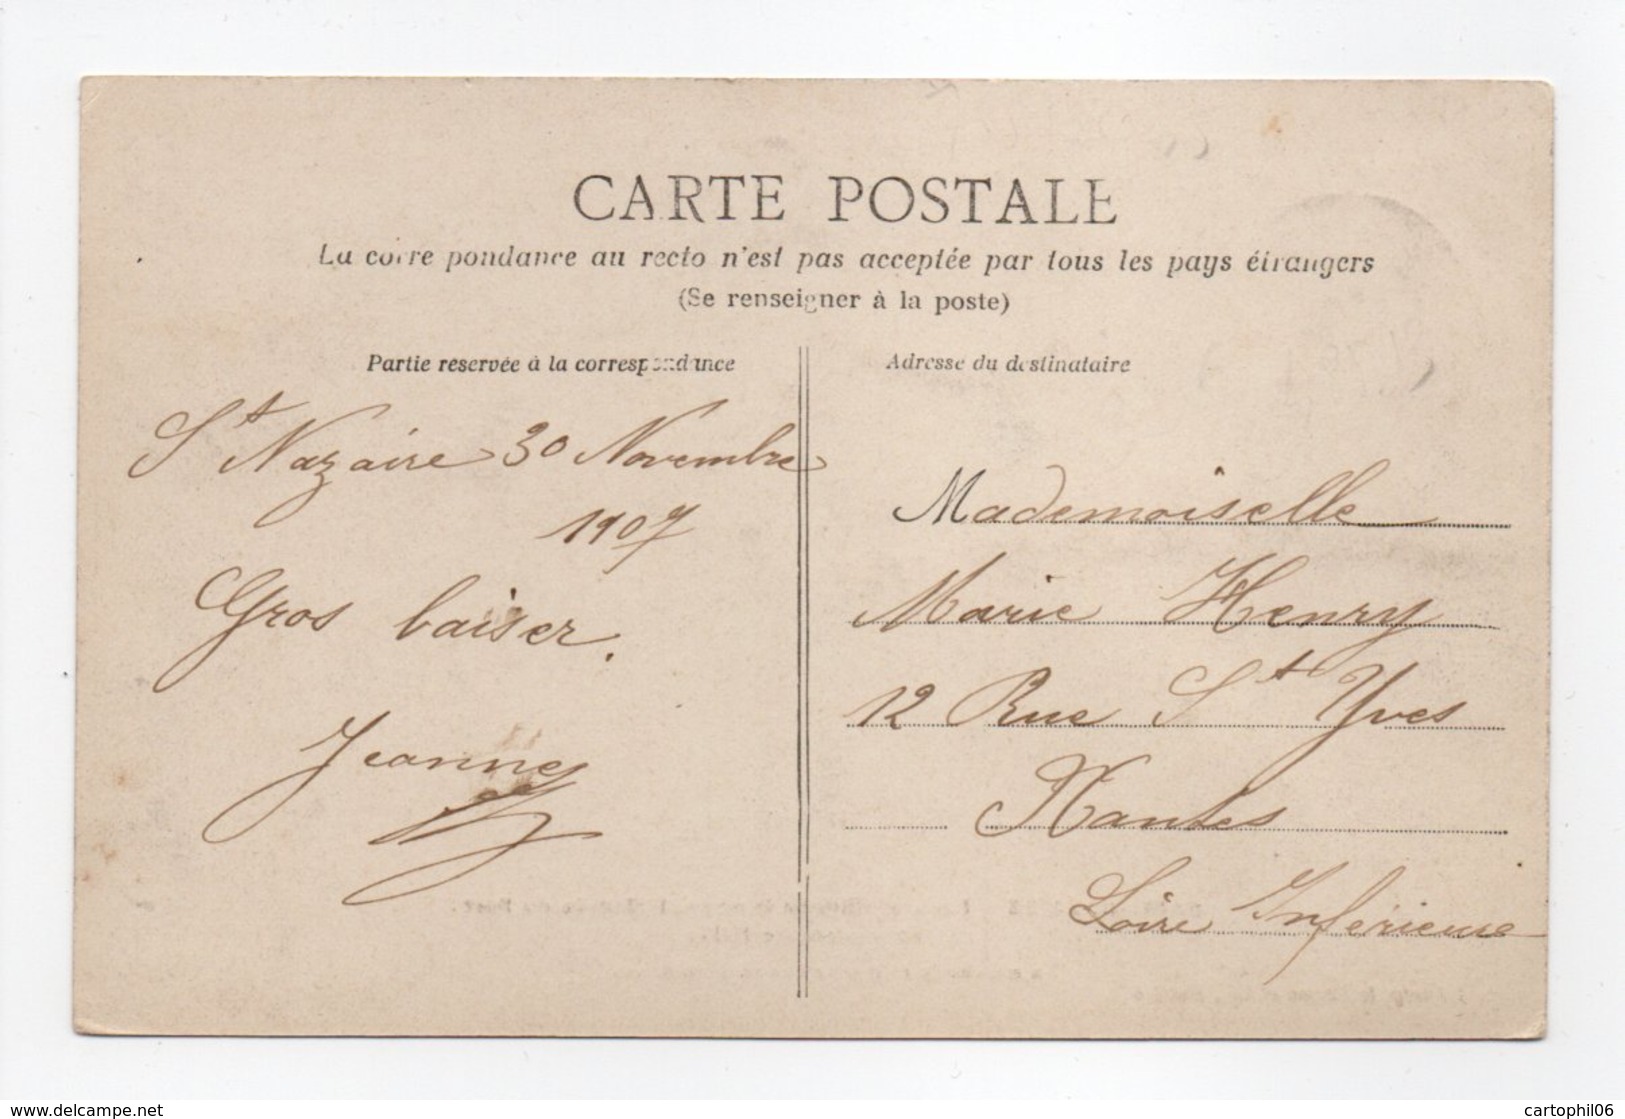 CARTE POSTALE
La correspondance au recto n'est pas acceptée par tous les pays étrangers
(Se renseigner à la poste)
Partie réservée à la correspondance
St Nazaire 30 Novembre
1907
Gros baiser.
Jeanne
Adresse du destinataire
Mademoiselle
Marie Henry
12 Rue St Yves
Nantes
Loire Inférieure
www.delcampe.net
cartophil06